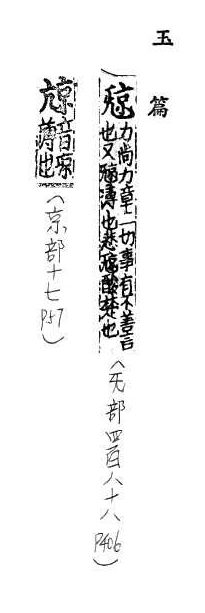 玉篇
力尚力章二切事有不善言
也又薄也悲酸楚也
(旡部四百八十八 P406)
音
薄也
(京部十七 P57)